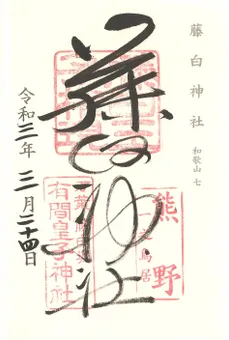 藤白神社 和歌山 七
熊野
一之鳥居
藤白神社
有間皇子神社
令和三年 三月二十四日